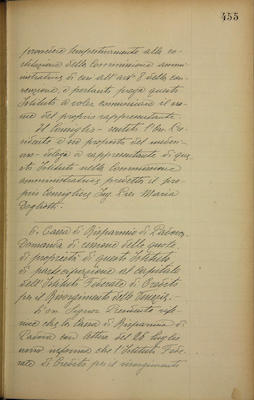 455
provvedere tempestivamente alla co-
stituzione della Commissione ammi-
nistratrice di cui all'art° 8 della con-
venzione e pertanto prega questo
Istituto a voler comunicare il no-
me del proprio rappresentante.
Il Consiglio - sentito l'On. Pre-
sidente e su proposta del
delega a rappresentante di que-
sto Istituto nella Commissione
amministratrice predetta il pro-
prio Consigliere Ing. Maria
6. Cassa di Risparmio di Padova
Domanda di cessione della quota
di proprietà di questo Istituto
di partecipazione al capitale
dell'Istituto Federale di Credito
per il Risorgimento delle Venezie.
L'On. Signor Presidente
che la Cassa di Risparmio di
Padova con lettera del 26 luglio
informa che l'Istituto Fede-
rale di Credito per il risorgimento